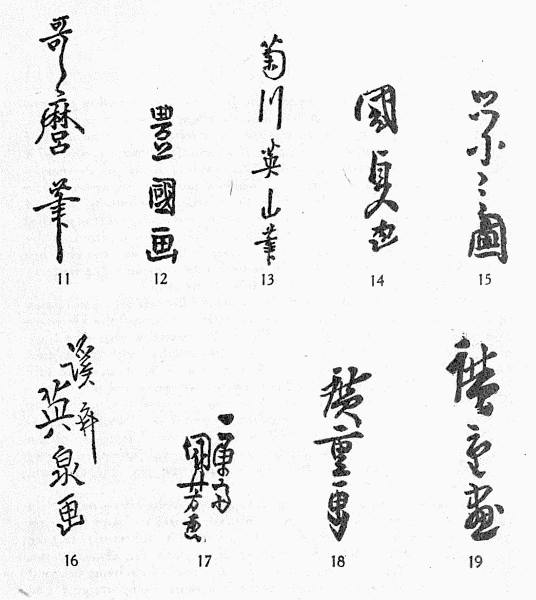 哥麿筆
11
豊國画
12
菊川英山筆
13
國貞画
14
栄之圖
15
溪斎
英泉画
16
一勇斎
國芳画
17
廣重画
18
廣重画
19